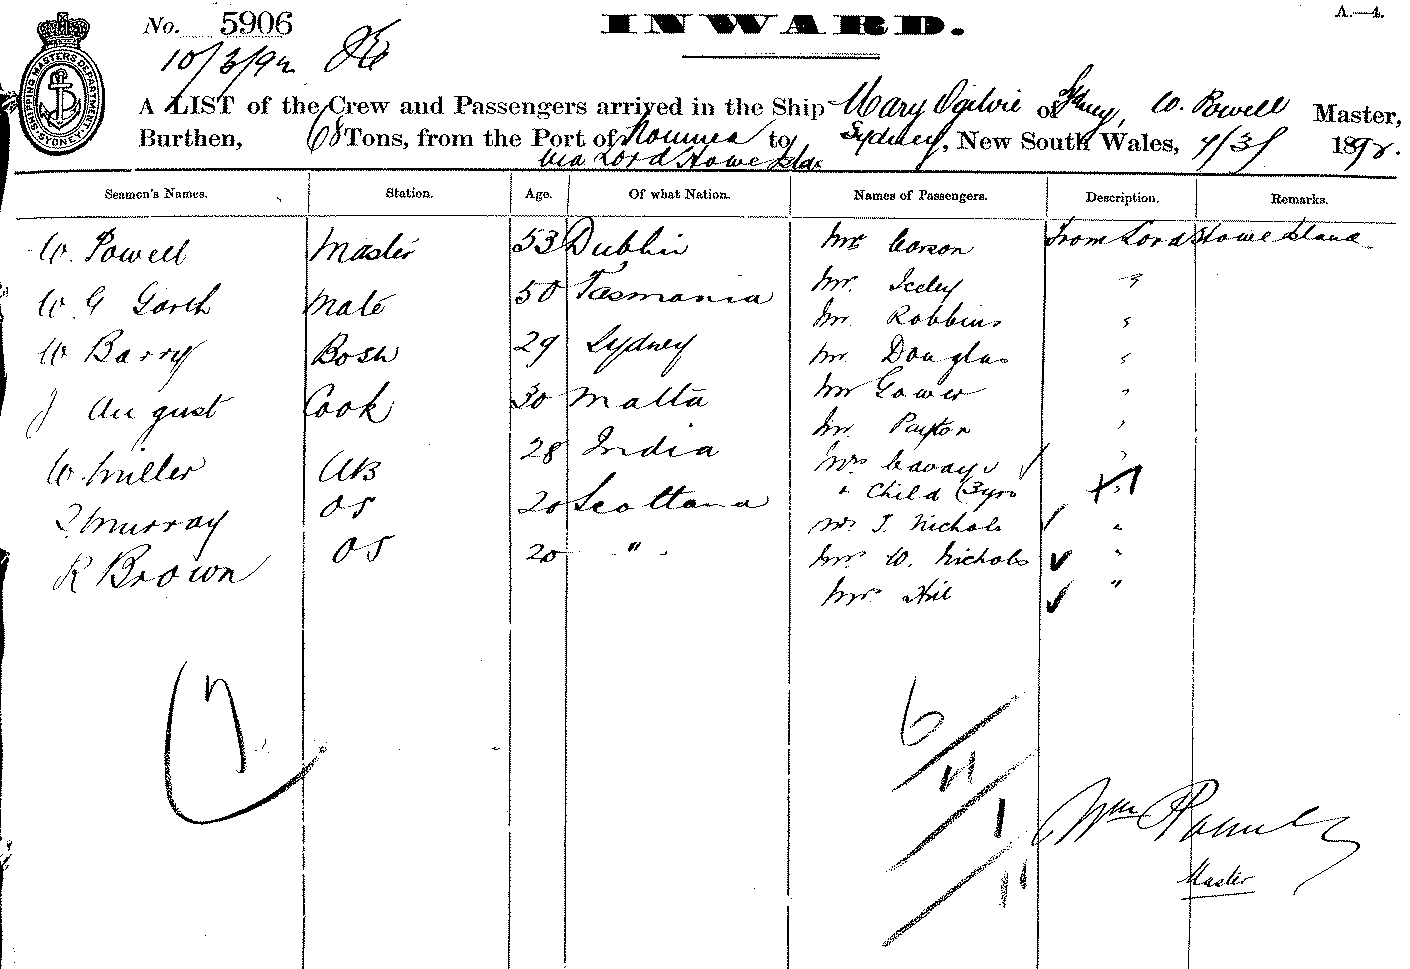 No. 5906
INWARD.
A.—4.
10/3/92
SHIPPING MASTERS DEPARTMENT SYDNEY
A LIST of the Crew and Passengers arrived in the Ship Mary Ogilvie of Sydney, W. Powell Master,
Burthen, 68 Tons, from the Port of Noumea to Sydney, New South Wales, 4/3/ 1892.
via Lord Howe Isla
Seamen's Names. Station. Age. Of what Nation. Names of Passengers. Description. Remarks.
W. Powell Master 53 Dublin Mr Carson From Lord Howe Island
W. G Garth Mate 50 Tasmania Mr. "
Mr. Robbins "
W Barry Bosn 29 Sydney Mr Douglas "
J August Cook 30 Malta Mr Gower "
Mr. Payton "
W. Miller AB 28 India Mrs "
" Child (3yrs "
Murray OS 20 Scotland Mr T. Nichols "
R Brown OS 20 " Mr W. Nichols "
Mr "
7
6
11
1
11
Wm Powell
Master